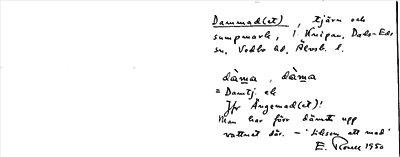 Dammad(et), tjärn och
sumpmark, i Knipan, Dals-Eds
sn. Vedbo hd. Älvsb. l.
dàma, dàma
= Damtj. ek
Jfr Ängemad(et)!
Man har förr dämt upp
vattnet där. – "liksom ett mad"
E. 1950